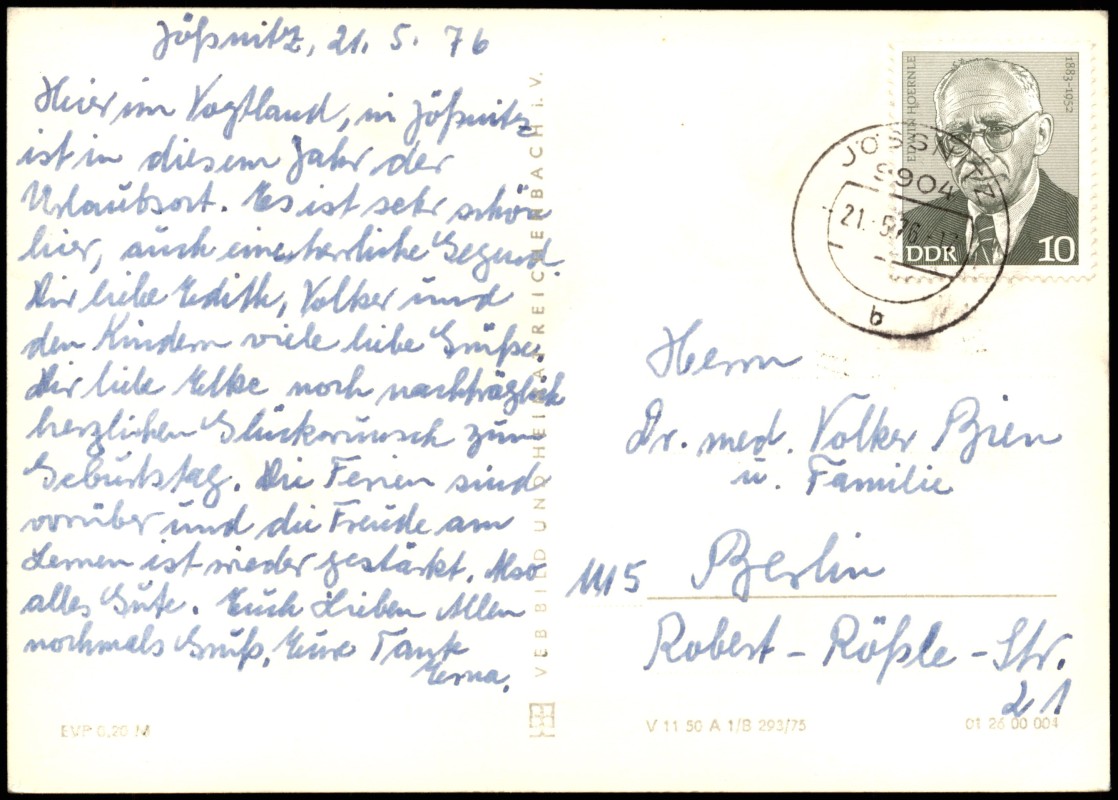 Jößnitz, 21. 5. 76
Hier im Vogtland, in Jößnitz
ist in diesem Jahr der
Urlaubsort. Es ist sehr schön
hier, auch eine herrliche Gegend.
Dir liebe Edith, Volker und
den Kindern viele liebe Grüße.
Dir liebe Elke noch nachträglich
herzlichen Glückwunsch zum
Geburtstag. Die Ferien sind
vorüber und die Freude am
Lernen ist wieder gestärkt. Also
alles Gute. Euch Lieben Allen
nochmals Gruß, Eure Tante
Erna.
EVP 0,20 M
VEB BILD UND HEIMAT REICHENBACH I. V.
EDWIN HOERNLE
1883-1952
DDR 10
JÖSSNITZ
9904
21.-5.76
b
Herrn
Dr. med. Volker Bien
u. Familie
1115 Berlin
Robert-Rößle-Str.
21
V 11 50 A 1/B 293/75
01 26 00 004